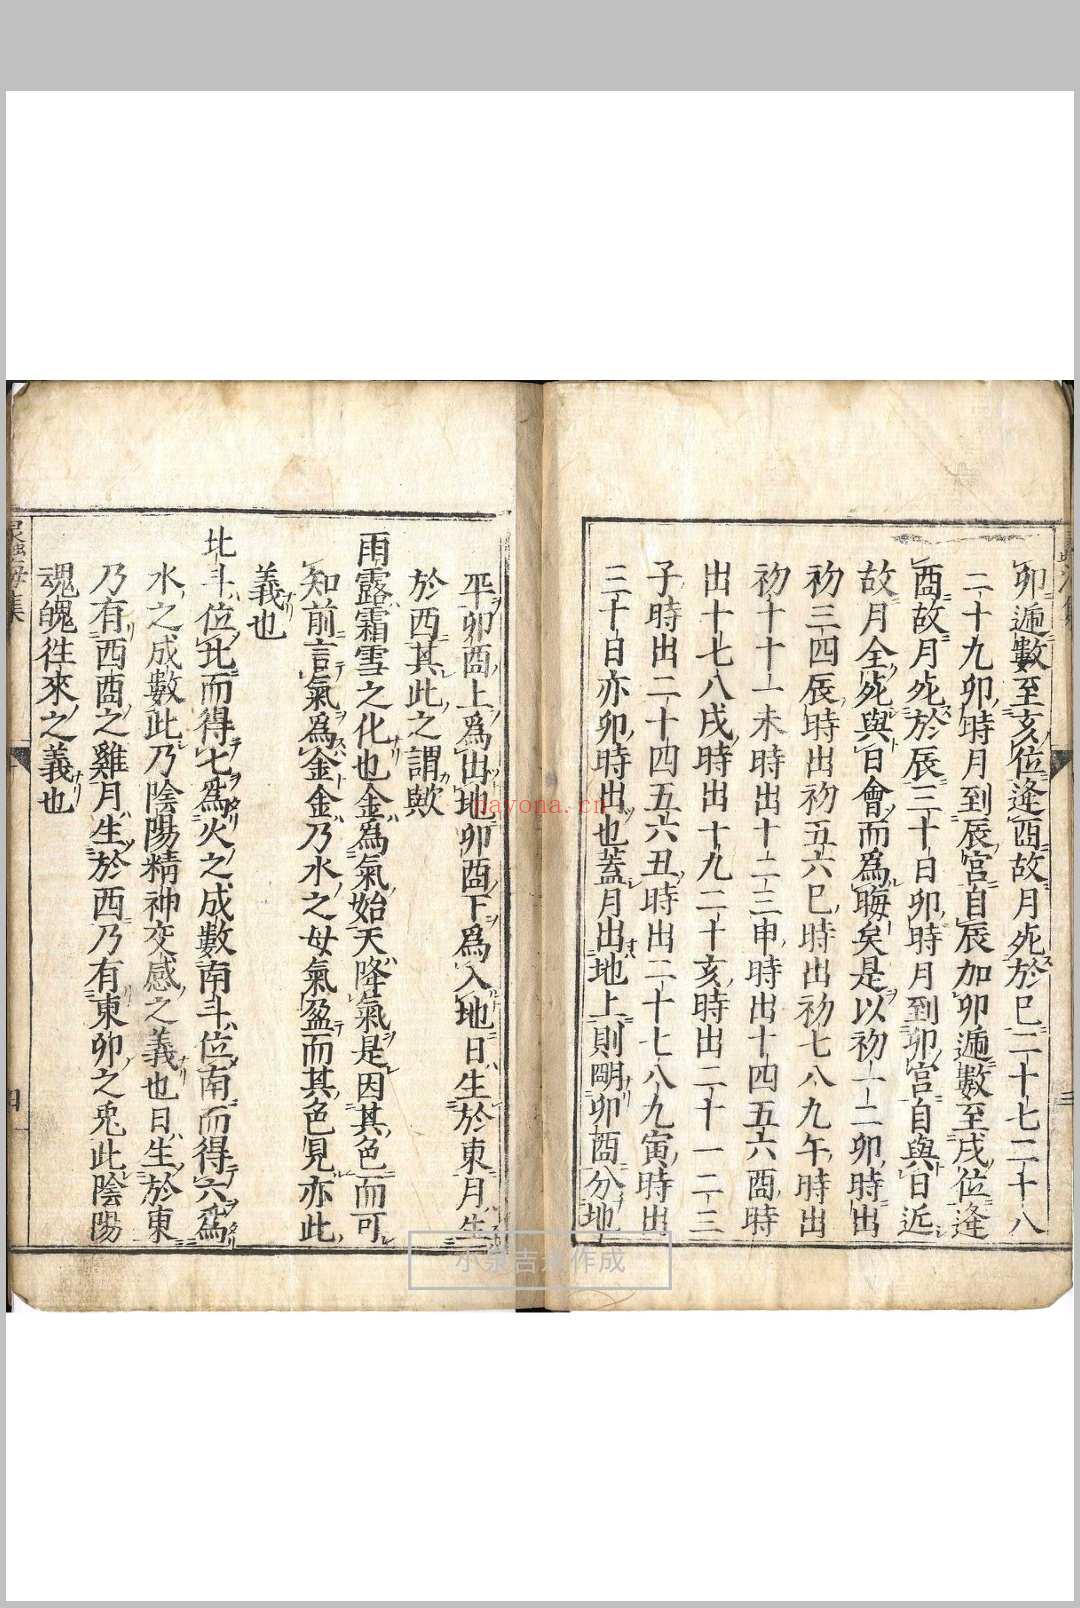 卯遍數至亥位逢酉故月死於巳二十七二十八
二十九卯時月到辰宮自辰加卯遍數至戌位逢
酉故月死於辰三十日卯時月到卯宮自與日近
故月全死與日會而爲晦矣是以初一二卯時出
初三四辰時出初五六巳時出初七八九午時出
初十十一未時出十二三申時出十四五六酉時
出十七八戌時出十九二十亥時出二十一二三
子時出二十四五六丑時出二十七八九寅時出
三十日亦卯時出也蓋月出地上則明卯酉分地
平卯酉上爲出地卯酉下爲入地日生於東月生
於西其此之謂歟
雨露霜雪之化也金爲氣始天降氣是因其色而可
知前言氣爲金金乃水之母氣盈而其色見亦此
義也
北斗位北而得七爲火之成數南斗位南而得六爲
水之成數此乃陰陽精神交感之義也日生於東
乃有西酉之雞月生於西乃有東卯之兎此陰陽
魂魄往來之義也
四
payona.cn
小泉吉永作成